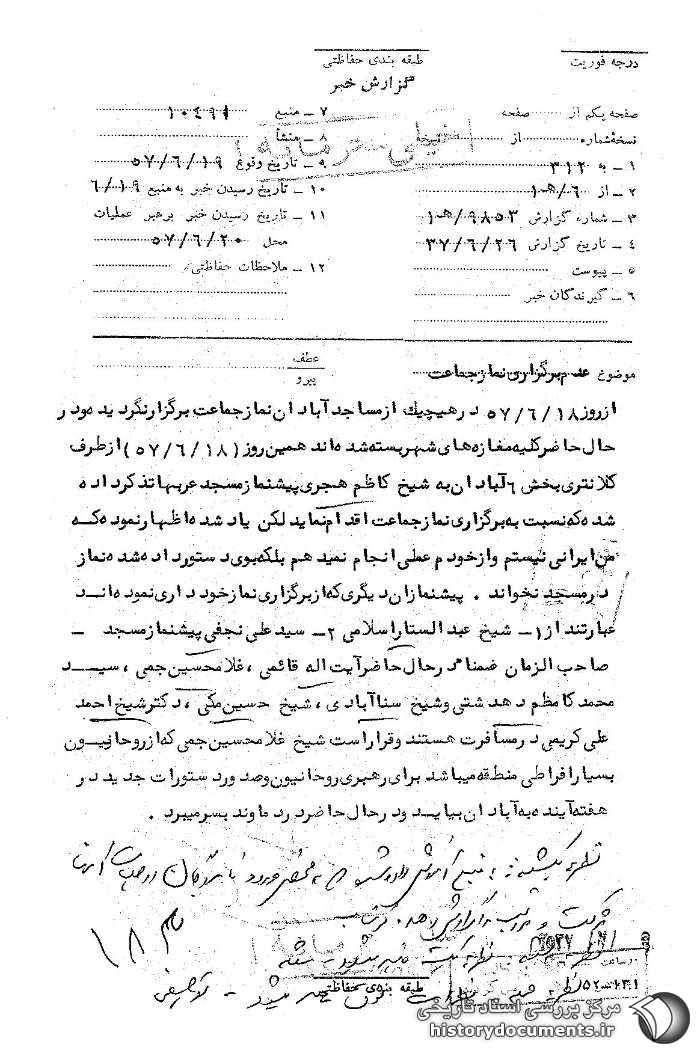 درجه فوریت
طبقه بندی حفاظتی
گزارش خبر
خیلی محرمانه
صفحه یکم از صفحه
نسخه شماره از نسخه
۱ ــ به ۳۱۲
۲ ــ از ۶/ﻫ۱۰
۳ ــ شماره گزارش ۹۸۵۳/ﻫ۱۰
۴ ــ تاریخ گزارش ۳۷/۶/۲۶
۵ ــ پیوست
۶ ــ گیرندگان خبر
۷ ــ منبع ۱۰۴۹۱
۸ ــ منشأ
۹ ــ تاریخ وقوع ۵۷/۶/۱۹
۱۰ ــ تاریخ رسیدن خبر به منبع ۶/۱۹
۱۱ ــ تاریخ رسیدن خبر برهبر عملیات
محل ۵۷/۶/۲۰
۱۲ ــ ملاحظات حفاظتی
موضوع عدم برگزاری نماز جماعت
عطف
پیرو
از روز ۵۷/۶/۱۸ در هیچیک از مساجد آبادان نماز جماعت برگزار نگردیده و در
حال حاضر کلیه مغازه های شهر بسته شده اند همین روز (۵۷/۶/۱۸) از طرف
کلانتری بخش ۶ آبادان به شیخ کاظم هجری پیشنماز مسجد عربها تذکر داده
شده که نسبت به برگزاری نماز جماعت اقدام نماید لکن یاد شده اظهار نموده که
من ایرانی نیستم و از خودم عملی انجام نمیدهم بلکه بوی دستور داده شده نماز
در مسجد نخواند . پیشنمازان دیگری که از برگزاری نماز خودداری نموده اند
عبارتند از ۱ــ شیخ عبدالستار اسلامی ۲ــ سید علی نجفی پیشنماز مسجد ــ
صاحب الزمان ضمنا در حال حاضر آیت اله قائمی ، غلامحسین جمی ، سید
محمد کاظم دهدشتی و شیخ سناآبادی ، شیخ حسین مکی ، دکتر شیخ احمد
علی کریمی در مسافرت هستند و قرار است شیخ غلامحسین جمی که از روحانیون
بسیار افراطی منطقه میباشد برای رهبری روحانیون و صدور دستورات جدید در
هفته آینده به آبادان بیاید و در حال حاضر در دماوند بسر میبرد .
نظریه یکشنبه : به منبع آموزش داده شد
شرکت و مراتب را گزارش دهد .
۱۸۳
نظریه
طبقه بندی حفاظتی
مرکز بررسی اسناد تاریخی
historydocuments.ir